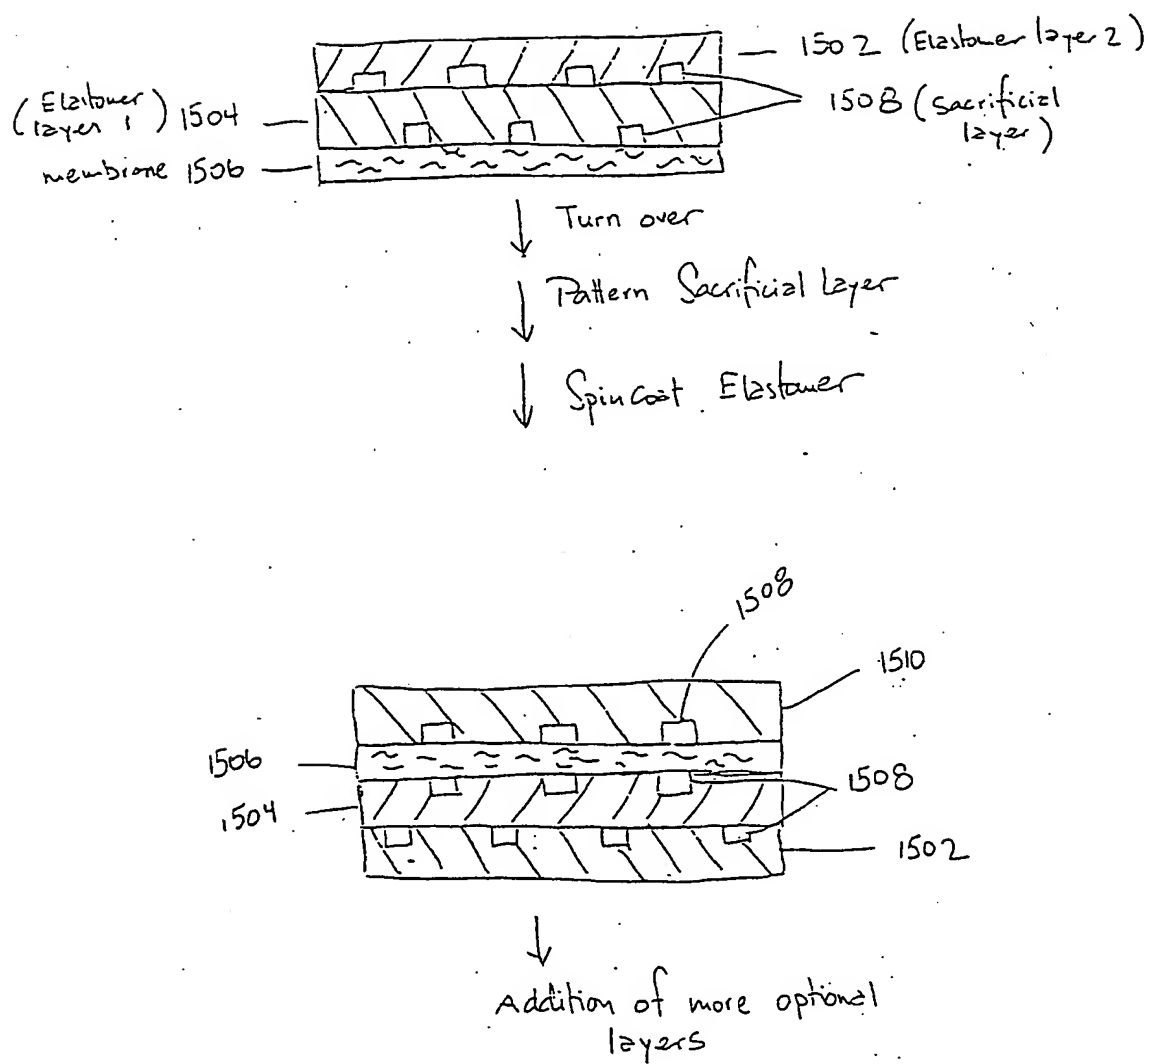 1502 (Elastomer layer 2)
(Elastomer layer 1) 1504
1508 (sacrificial layer)
membrane 1506
Turn over
Pattern Sacrificial Layer
Spincoat Elastomer
1508
1510
1506
1508
1504
1502
Addition of more optional
layers